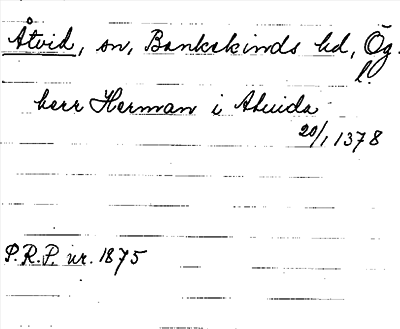 Åtvid, sn, Bankekinds hd, Ög.
l.
herr Herman i Atuida
20/1 1378
P.R.P. nr. 1875